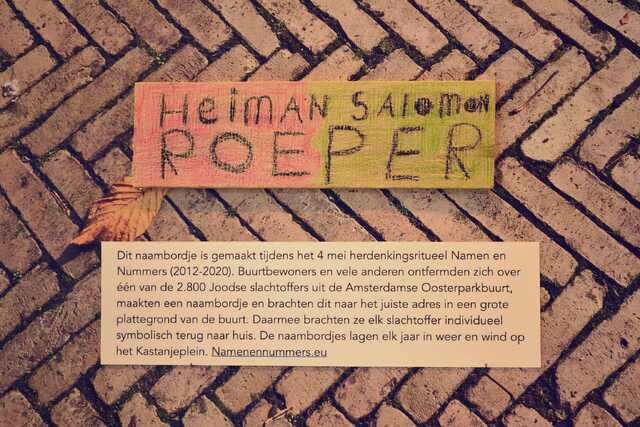 HeimAN SAlomoN
ROEPER
Dit naambordje is gemaakt tijdens het 4 mei herdenkingsritueel Namen en
Nummers (2012-2020). Buurtbewoners en vele anderen ontfermden zich over
één van de 2.800 Joodse slachtoffers uit de Amsterdamse Oosterparkbuurt,
maakten een naambordje en brachten dit naar het juiste adres in een grote
plattegrond van de buurt. Daarmee brachten ze elk slachtoffer individueel
symbolisch terug naar huis. De naambordjes lagen elk jaar in weer en wind op
het Kastanjeplein. Namenennummers.eu